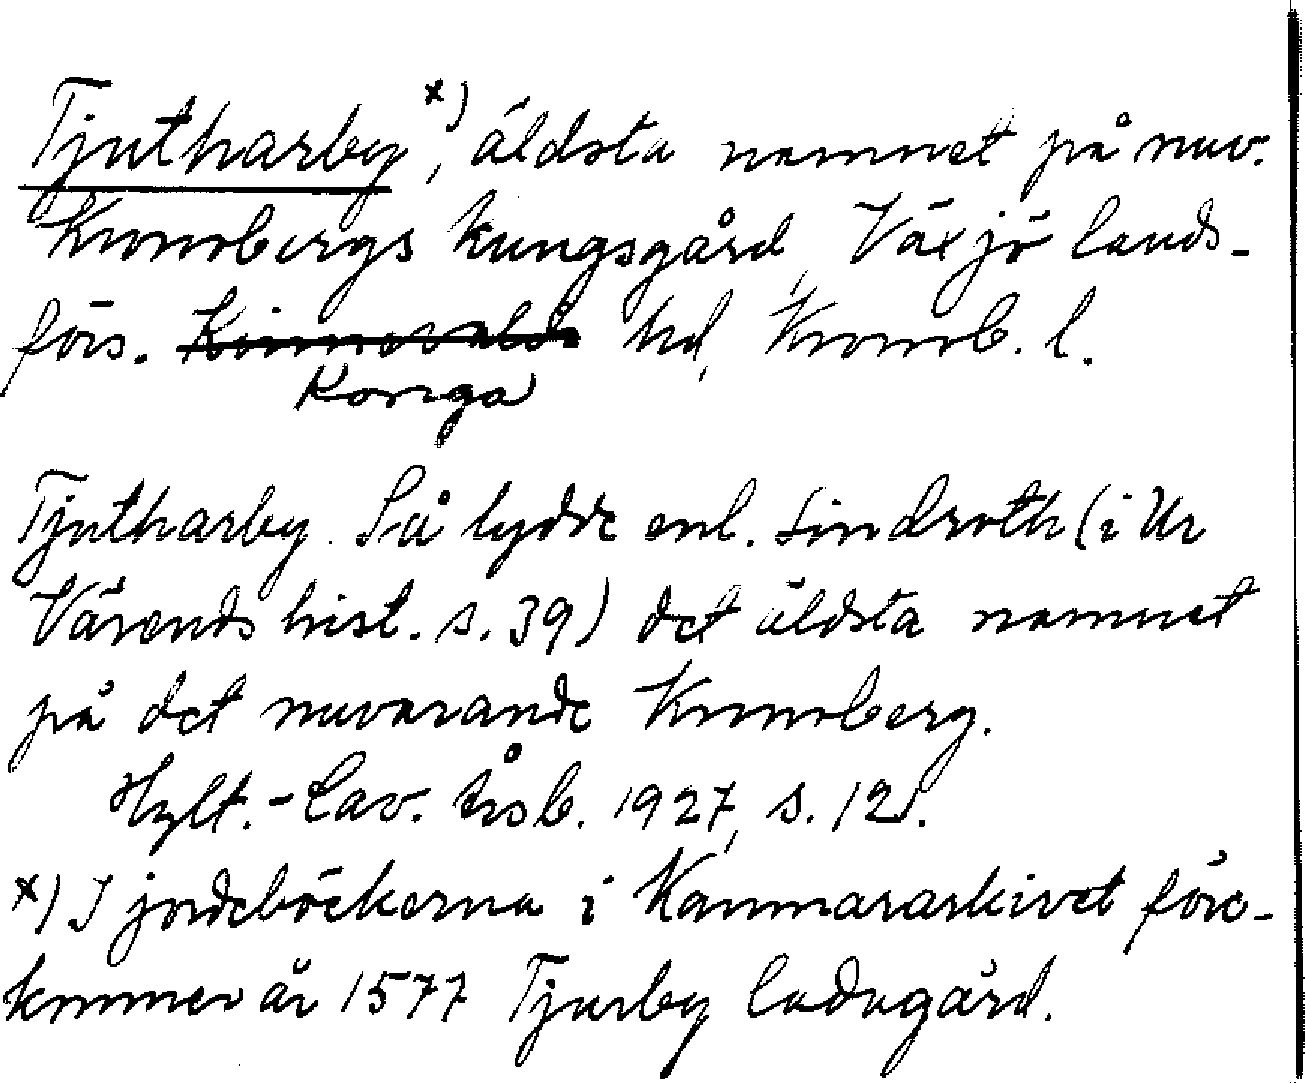 Tjutharby x), äldsta namnet på nuv.
Kronobergs kungsgård, Växjö lands-
förs. Kinnevalds hd, Kronob. l.
Konga
Tjutharby. Så lydde enl. Lindroth (i Ur
Värends hist. s. 39) det äldsta namnet
på det nuvarande Kronoberg.
Hylt.-Cav. årsb. 1927, s. 12.
x) I jordeböckerna i Kammararkivet före-
kommer år 1577 Tjurby ladugård.